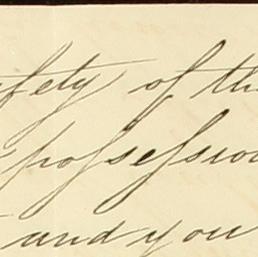 afety of th
possession
and you